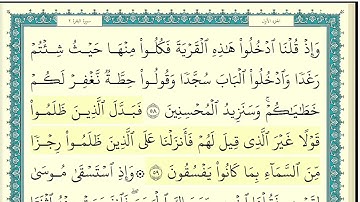 سورة البقرة ٢
الجزء الأول
وَإِذْ قُلْنَا ٱدْخُلُوا۟ هَـٰذِهِ ٱلْقَرْيَةَ فَكُلُوا۟ مِنْهَا حَيْثُ شِئْتُمْ
رَغَدًا وَٱدْخُلُوا۟ ٱلْبَابَ سُجَّدًا وَقُولُوا۟ حِطَّةٌ نَّغْفِرْ لَكُمْ
خَطَـٰيَـٰكُمْ ۚ وَسَنَزِيدُ ٱلْمُحْسِنِينَ ٥٨ فَبَدَّلَ ٱلَّذِينَ ظَلَمُوا۟
قَوْلًا غَيْرَ ٱلَّذِى قِيلَ لَهُمْ فَأَنزَلْنَا عَلَى ٱلَّذِينَ ظَلَمُوا۟ رِجْزًا
مِّنَ ٱلسَّمَآءِ بِمَا كَانُوا۟ يَفْسُقُونَ ٥٩ ۞ وَإِذِ ٱسْتَسْقَىٰ مُوسَىٰ